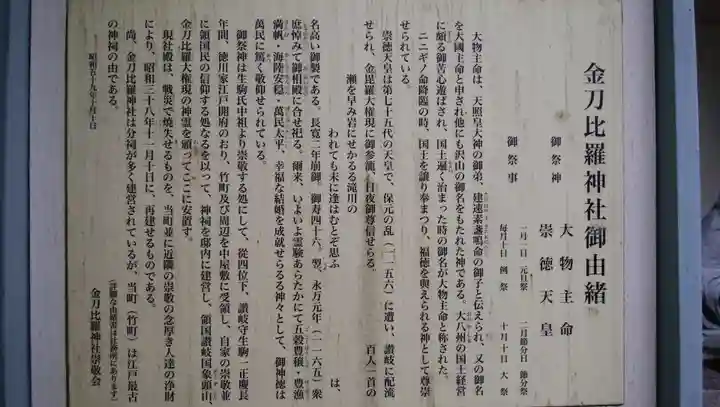 金刀比羅神社御由緒
御祭神
大物主命
崇徳天皇
御祭事
一月一日 元旦祭
二月節分日 節分祭
毎月十日 例祭
十月十日 大祭
大物主命は、天照皇大神の御弟、建速素盞嗚命の御子と伝えられ、又の御名
を大國主命と申され他にも沢山の御名をもたれた神である。大八州の国土経営
に頗る御苦心遊ばされ、国土遍く治まった時の御名が大物主命と称された。
ニニギノ命降臨の時、国土を譲り奉まつり、福徳を與えられる神として尊崇
せられている。
崇徳天皇は第七十五代の天皇で、保元の乱(一一五六)に遭い、讃岐に配流
せられ、金毘羅大権現に御参籠、日夜御尊信せらる。
百人一首の
瀬を早み岩にせかるる滝川の
われても末に逢はむとぞ思ふ
は、
名高い御製である。長寛二年崩御。御寿四十六。翌、永万元年(一一六五)衆
庶悼みて御相殿に合せ祀る。爾来、いよいよ霊験あらたかにて五穀豊穣・豊漁
満帆・海陸安穏・萬民太平、幸福な結婚を成就せらるる神々として、御神徳は
萬民に篤く敬仰せられている。
御祭神は生駒氏中祖より崇敬する処にして、従四位下、讃岐守生駒一正慶長
年間、徳川家江戸開府のおり、竹町及び周辺を中屋敷に受領し、自家の崇敬並
に領国民の信仰する処なるを以って、神祠を邸内に建営し、領国讃岐国象頭山
金刀比羅大権現の神霊を頒ってここに安置す。
現社殿は、戦災で焼失せるものを、当町並に近隣の崇敬の念厚き人達の浄財
により、昭和三十八年十一月十日に、再建せるものである。
尚、金刀比羅神社は分祠が多く建営されているが、当町(竹町)は江戸最古
の神祠の由である。
(詳細な由緒書は社務所にあります)
昭和五十九年十月十日
金刀比羅神社崇敬会